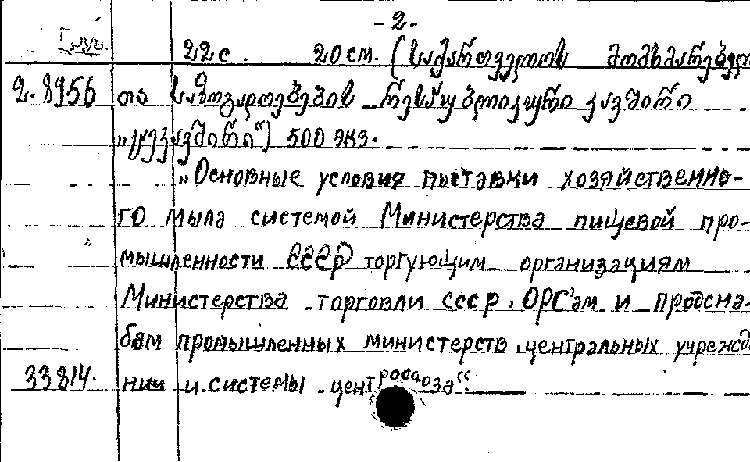 -2.
22 с. 20 см. (საქართველოს მომხმარებელ
2.8956 თა საზოგადოებების რესპუბლიკური კავშირი
„ცეკავშირი“) 500 экз.
„Основные условия поставки хозяйственно-
го мыла системой Министерства пищевой про-
мышленности СССР торгующим организациям
Министерства торговли СССР, ОРС'ам и продсна-
бам промышленных министерств, центральных учрежде
33814. нии и системы центросоюза“